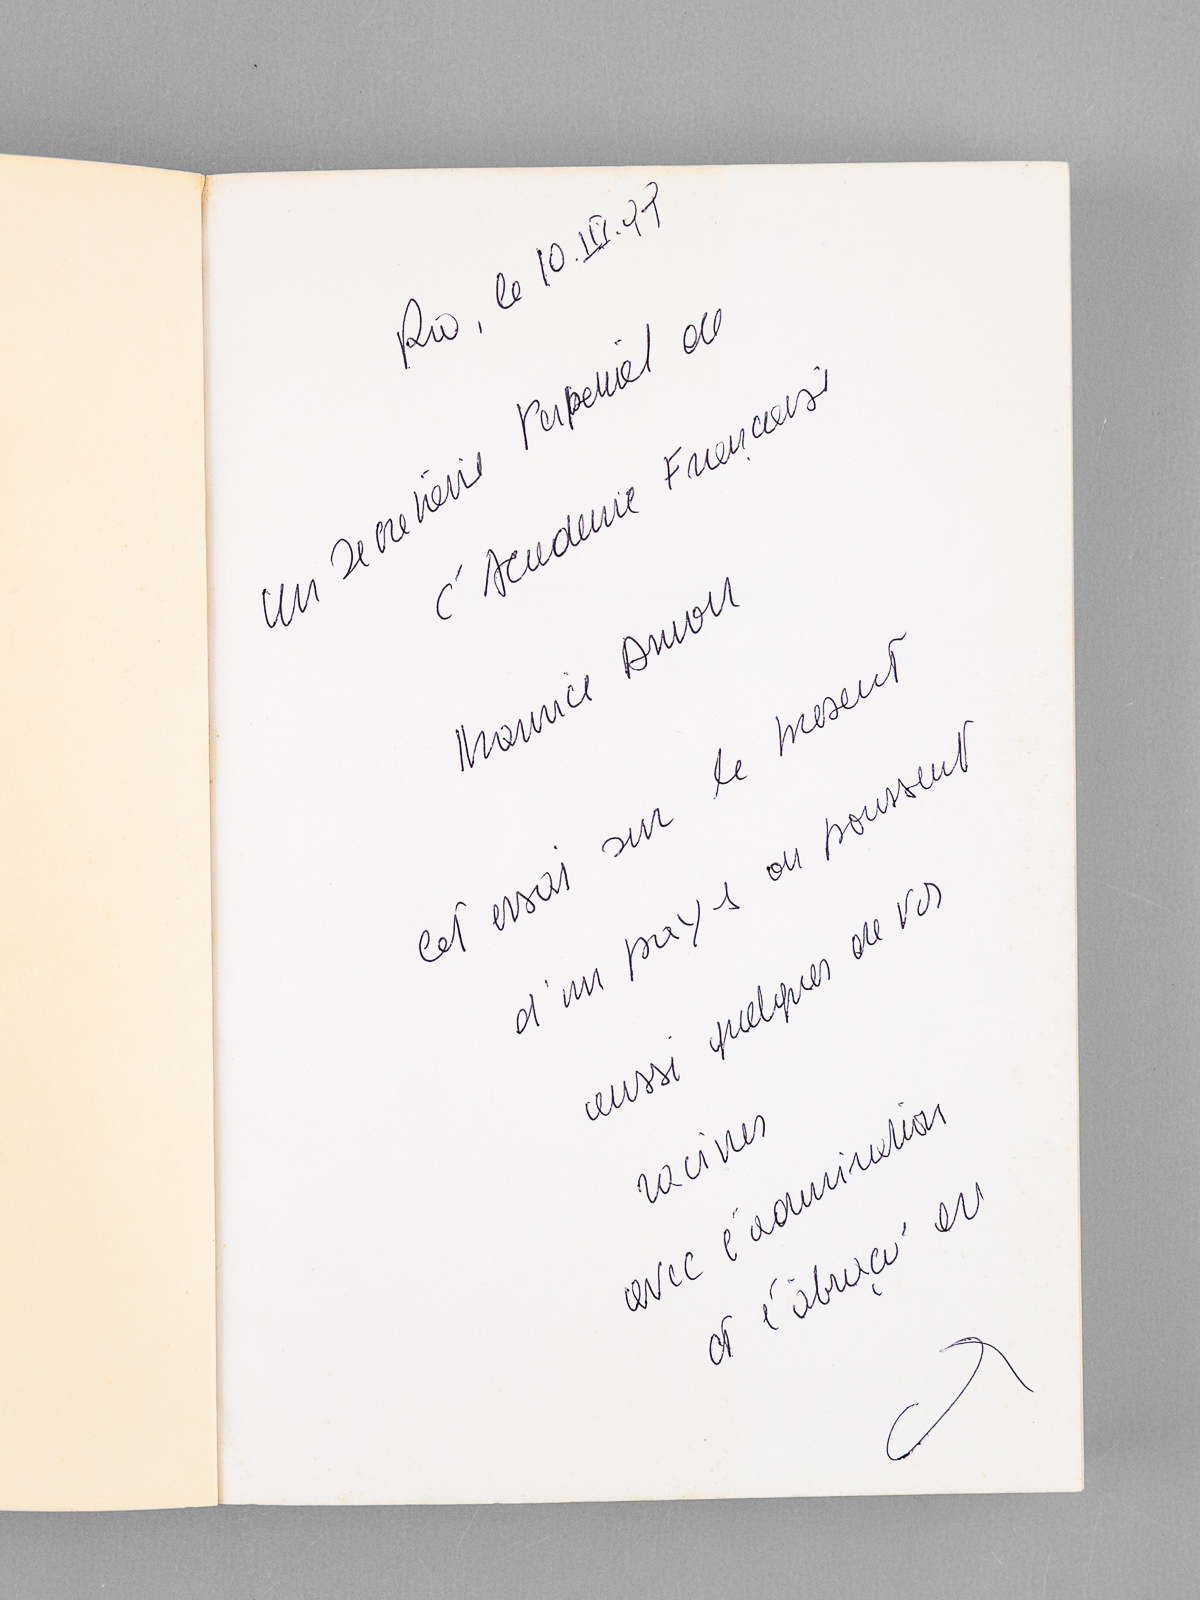 Rio, le 10.III.97
Au Secrétaire Perpétuel de
l'Académie Française
Maurice Druon
Cet essai sur le présent
d'un pays où poussent
aussi quelques de vos
racines
avec l'admiration
et l'abraço